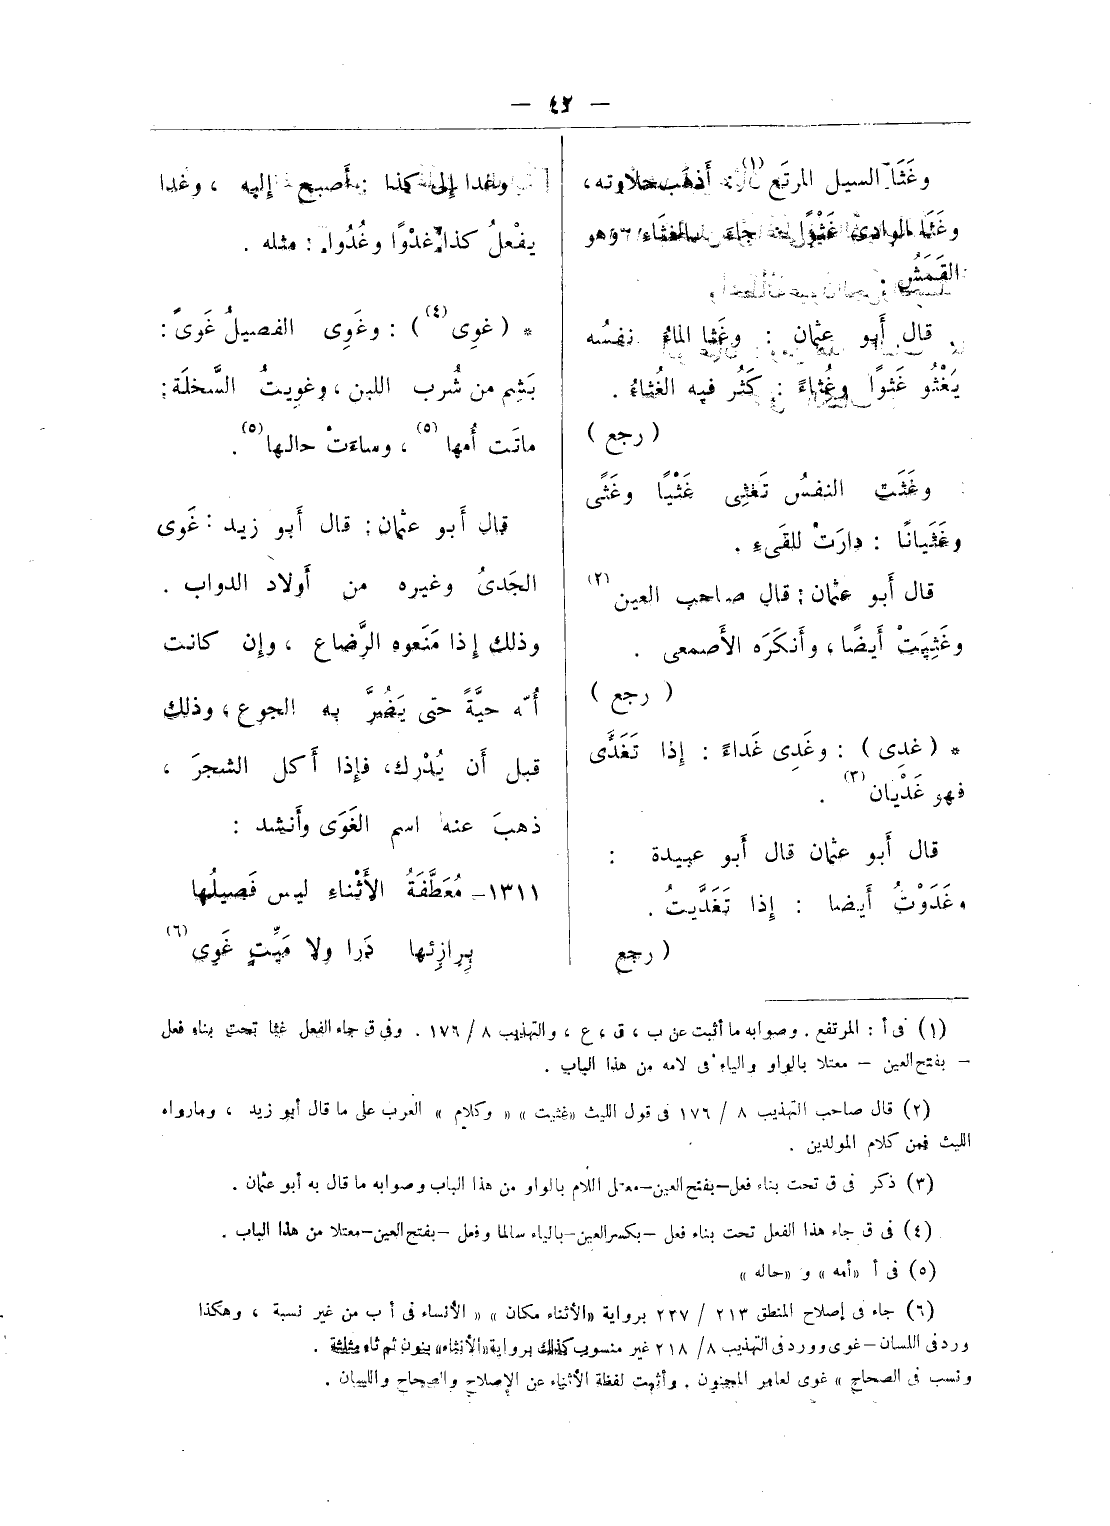 — ٤٢ —
وغَثَا السيل المرتَع (١) أذهب حلاوته ،
وغَثَا الوادى غَثْوًا جاء بالغثاء وهو
القَمَشُ .
قال أَبو عثمان : وغَثا الماءُ نفسُه
يَغْثُو غَثوًا وغُثاءً : كَثُر فيه الغُثاءُ .
( رجع )
وغَثَت النفسُ تَغثِى غَثْيًا وغَثًى
وغَثَيانًا : دارَتْ للقَىءِ .
قال أَبو عثمان : قال صاحب العين (٢)
وغَثِيَتْ أَيضًا ، وأَنكَرَه الأَصمعى .
( رجع )
* ( غدِى ) : وغَدِى غَداءً : إذا تَغَدَّى
فهو غَدْيان (٣) .
قال أَبو عثمان قال أَبو عبيدة :
وغَدَوْتُ أَيضا : إذا تَغَدَّيتُ .
( رجع
وغدا إلى كذا : أَصبح إليه ، وغدا
يفْعلُ كذا غدْوًا وغُدُوا : مثله .
* ( غوِى (٤) ) : وغَوِى الفصيلُ غَوىً :
بَشِم من شُرب اللبن ، وغوِيتُ السَّخلَة :
ماتَت أُمها (٥) ، وساءَتْ حالها (٥) .
قال أَبو عثمان : قال أَبو زيد : غَوى
الجَدىُ وغيره من أَولاد الدواب .
وذلك إذا مَنَعوه الرَّضاع ، وإن كانت
أُمّه حيَّةً حتى يَضُرَّ به الجوع ، وذلك
قبل أَن يُدْرِك ، فإذا أَكل الشجرَ ،
ذهبَ عنه اسم الغَوَى وأَنشد :
١٣١١ـ مُعَطَّفَةُ الأَثْناءِ ليس فَصِيلُها
بِرازِئها دَرا ولا مَيِّتٍ غَوِى (٦)
(١) فى أ : المرتفع . وصوابه ما أثبت عن ب ، ق ، ع ، والتهذيب ٨ / ١٧٦ . وفى ق جاء الفعل غثا تحت بناء فعل
– بفتح العين – معتلا بالواو والياء فى لامه من هذا الباب .
(٢) قال صاحب التهذيب ٨ / ١٧٦ فى قول الليث «غثيت » « وكلام » العرب على ما قال أبو زيد ، ومارواه
الليث فمن كلام المولدين .
(٣) ذكر فى ق تحت بناء فعل–بفتح العين–معتل اللام بالواو من هذا الباب وصوابه ما قال به أبو عثمان .
(٤) فى ق جاء هذا الفعل تحت بناء فعل –بكسر العين–بالياء سالما وفعل –بفتح العين–معتلا من هذا الباب .
(٥) فى أ «أمه » و «حاله »
(٦) جاء فى إصلاح المنطق ٢١٣ / ٢٢٧ برواية «الأثناء مكان » « الأنساء فى أ ب من غير نسبة ، وهكذا
ورد فى اللسان–غوى وورد فى التهذيب ٨/ ٢١٨ غير منسوب كذلك برواية«الأنثاء» بنون ثم ثاء مثلثة .
ونسب فى الصحاح » غوى لعامر المجنون . وأثبت لفظة الأثناء عن الإصلاح والصحاح واللسان .